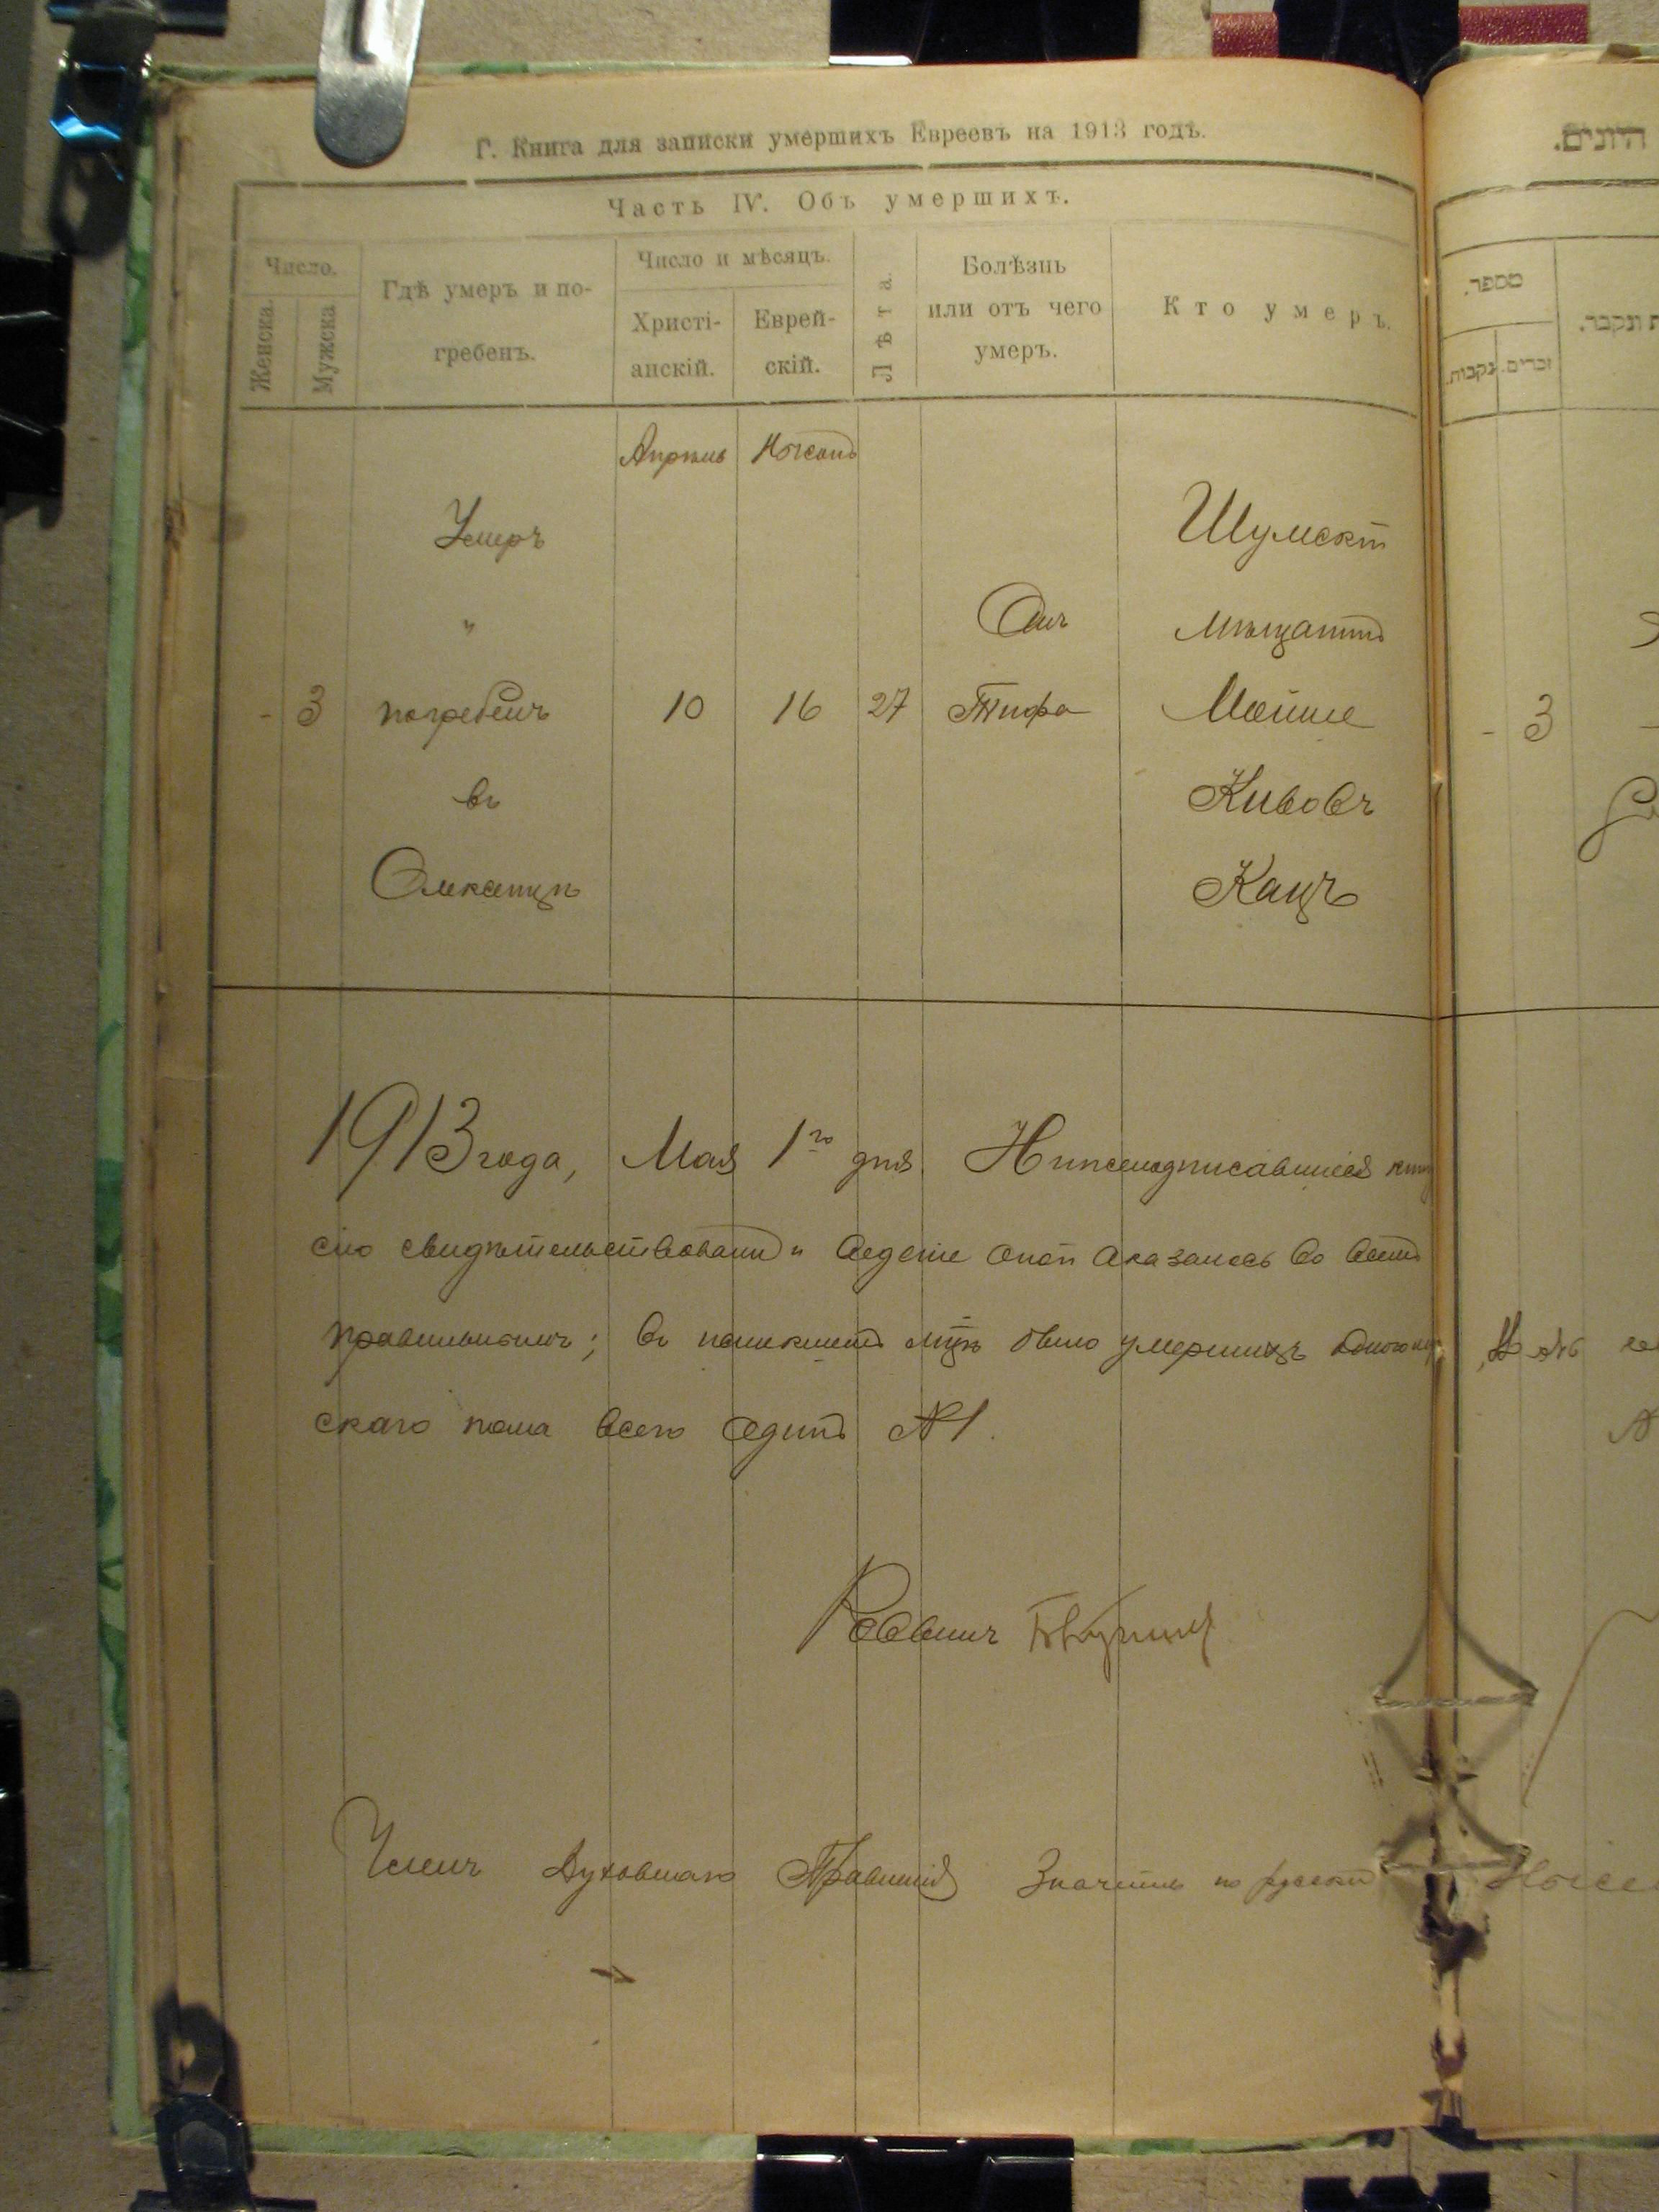 Г. Книга для записки умершихъ Евреевъ на 1913 годъ.
Часть IV. Объ умершихъ.
Число.
Женска
Мужска
Гдѣ умеръ и по-
гребенъ.
Число и мѣсяцъ.
Христі-
анскій.
Еврей-
скій.
Лѣта.
Болѣзнь
или отъ чего
умеръ.
Кто умеръ.
Апрѣль
Умеръ
"
- 3 погребенъ 10 16 27
въ
Отъ
Тифа
Шумскій
мѣщанинъ
Мойше
Кивовъ
Кацъ
1913 года, Мая 1го дня. Нижеподписавшіеся
сію свидѣтельствовали и веденіе оной оказалось во всемъ
правильнымъ; въ было умершихъ
скаго пола всего одинъ №1.
Раввинъ
Членъ Духовнаго Правленія Значитъ по русски
היונים.
מספר.
נקבות.
זכרים.
ונקבר.
- 3